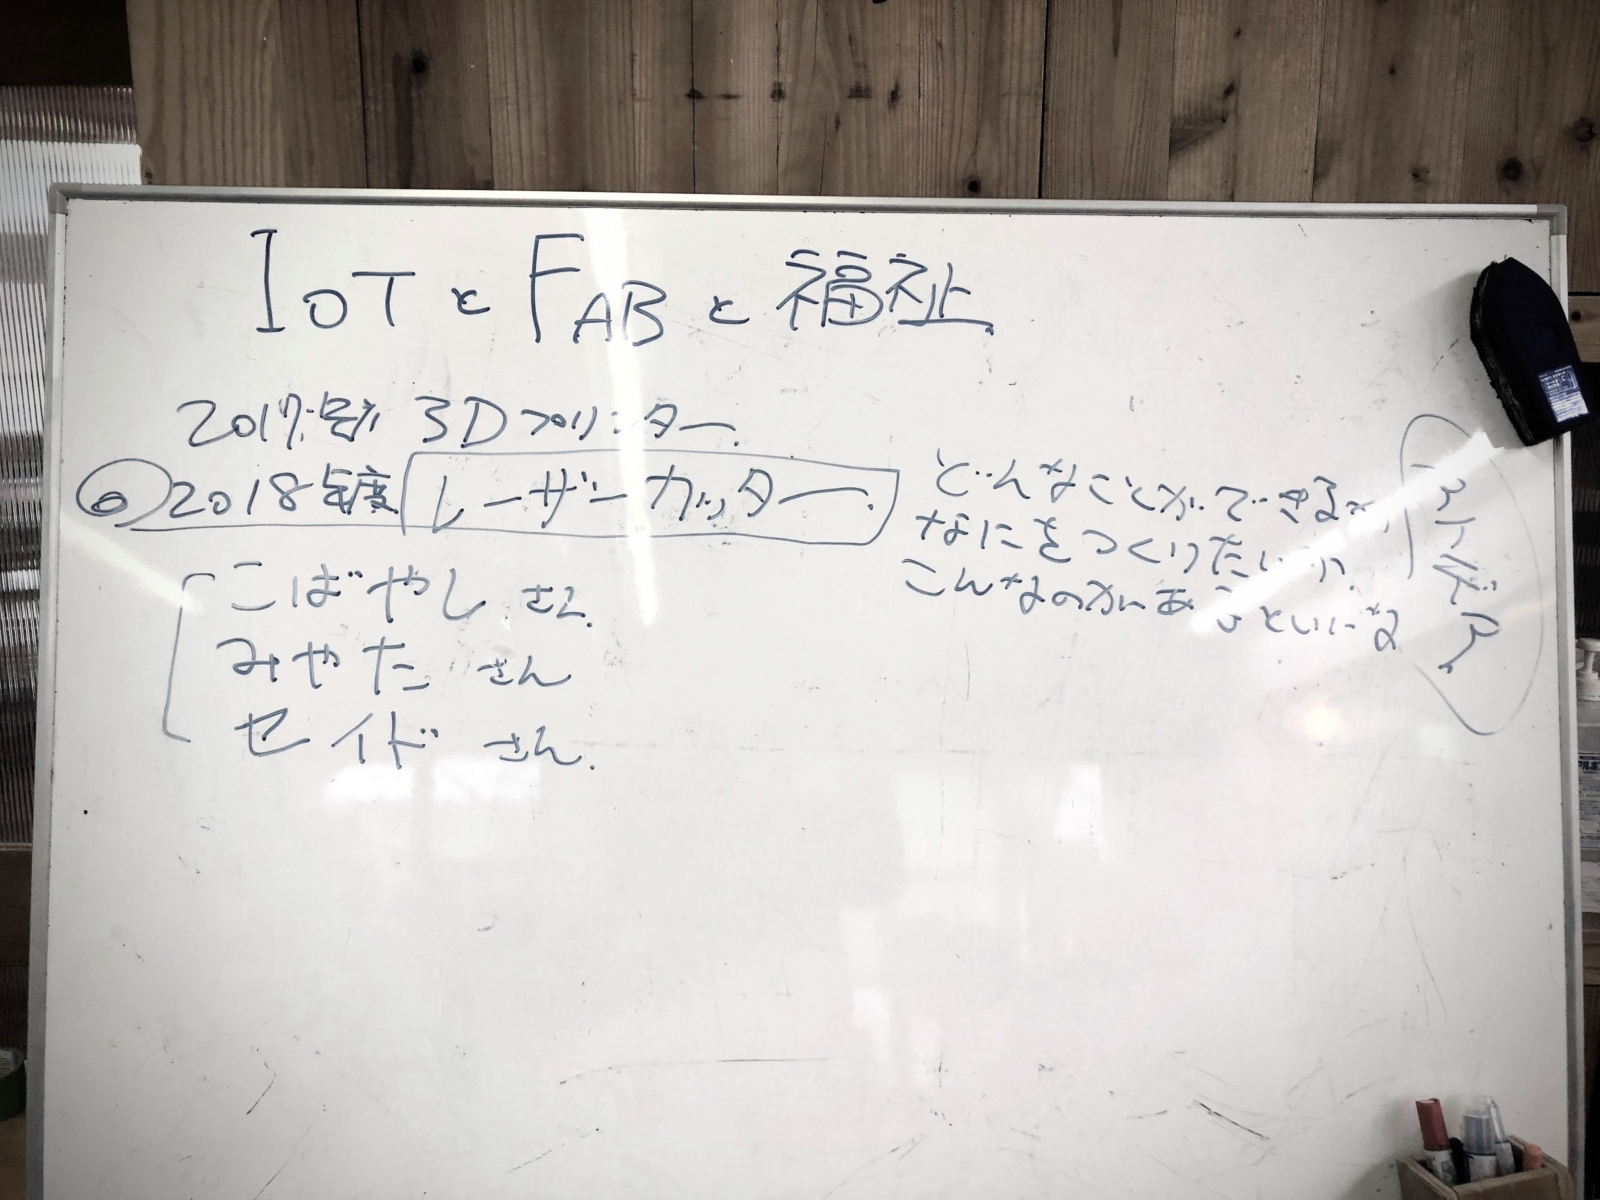 IoT と FAB と 福祉
2017年度 3Dプリンター.
◎ 2018年度 レーザーカッター.
こばやし さん.
みやた さん
セイド さん.
どんなことができるか,
なにをつくりたいか.
こんなのがあるといいな